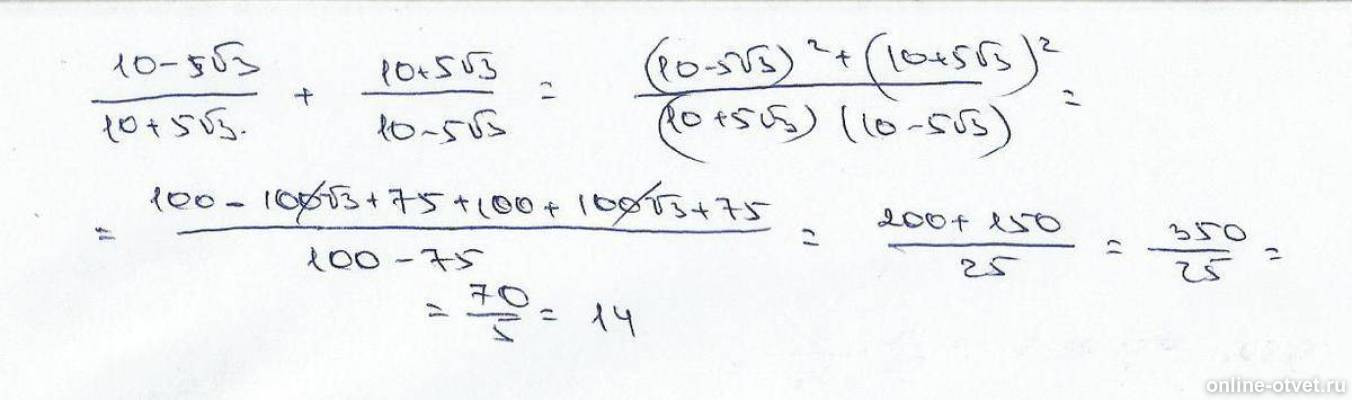 (10-5√3)/(10+5√3) + (10+5√3)/(10-5√3) = ((10-5√3)² + (10+5√3)²)/((10+5√3)(10-5√3)) =
= (100-100√3+75+100+100√3+75)/(100-75) = (200+150)/25 = 350/25 =
= 70/5 = 14
online-otvet.ru